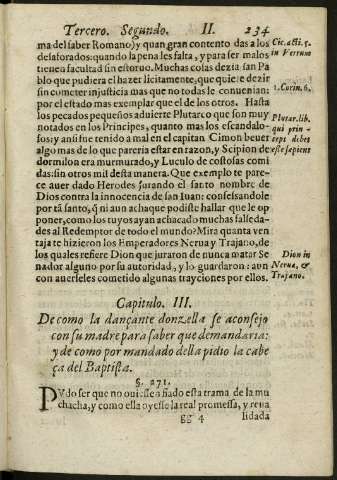 Tercero. Segundo. II. 234
ma del saber Romano) y quan gran contento das a los
desaforados: quando la pena les falta, y para ser malos
tienen facultad sin estoruo. Muchas cosas dezia san Pa
blo que pudiera el hazer licitamente, que quiere dezir
sin cometer injusticia mas que no todas le conuenian:
por el estado mas exemplar que el de los otros. Hasta
los pecados pequeños aduierte Plutarco que son muy
notados en los Principes, quanto mas los escandalo-
sos: y ansi fue tenido a mal en el capitan Cimon beuer
algo mas de lo que pareria estar en razon, y Scipion de
dormilon era murmurado, y Luculo de costosas comi
das: sin otros mil desta manera. Que exemplo te pare-
ce auer dado Herodes jurando el santo nombre de
Dios contra la innocencia de san Iuan: confessandole
por tã santo, q̃ ni aun achaque podiste hallar que le op
poner, como los tuyos ayan achacado muchas falleda-
des al Redemptor de todo el mundo? Mira quanta ven
taja te hizieron los Emperadores Nerua y Trajano, de
los quales refiere Dion que juraron de nunca matar Se
nador alguno por su autoridad, y lo guardaron: aun
con auerseles cometido algunas trayciones por ellos.
Cic. acti. 5.
in Verrem
1. Corin. 6.
Plutar. lib.
qui prin-
ceps debet
esse sapient
Dion in
Nerua, &
Trajano.
Capitulo. III.
De como la dançante donzella se aconsejo
con su madre para saber que demandaria:
y de como por mandado della pidio la cabe
ça del Baptista.
§. 271.
PVdo ser que no ouiesse afiado esta trama de la mu
chacha, y como ella oyesse la real promessa, y reua
gg 4 lidada